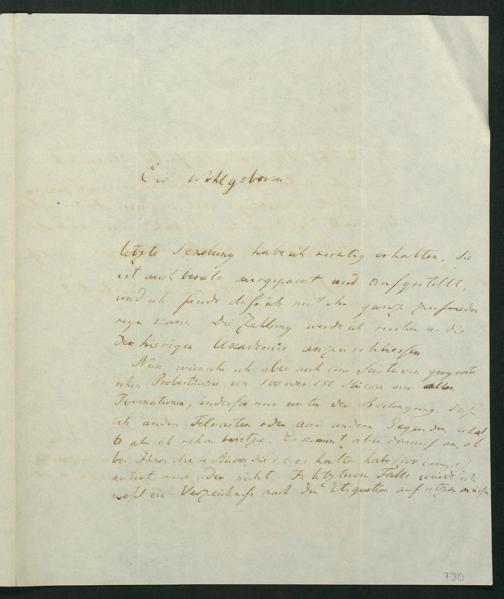 Ew Wohlgeboren
letzte Sendung habe ich richtig erhalten. Sie
ist auch bereits ausgepackt und aufgestellt,
und ich finde daß ich mit ihr ganz zufrieden
seyn kann. Die Zahlung werde ich an die
hiesigen Akademie
Nun wünsche ich aber noch eine Suite von
von 100 oder 150 Stücken aus allen
Formationen, unter der Bedingung daß
ich andere Felsarten oder aus andern Gegenden erhal
te als ich schon besitze. Es kommt aber darauf an ob
bei Ihnen die Stücke die ich erhalten habe
notirt sind oder nicht. Im letzteren Falle würde ich
wohl ein Verzeichniß nach den Etiquetten aufsetzen
780